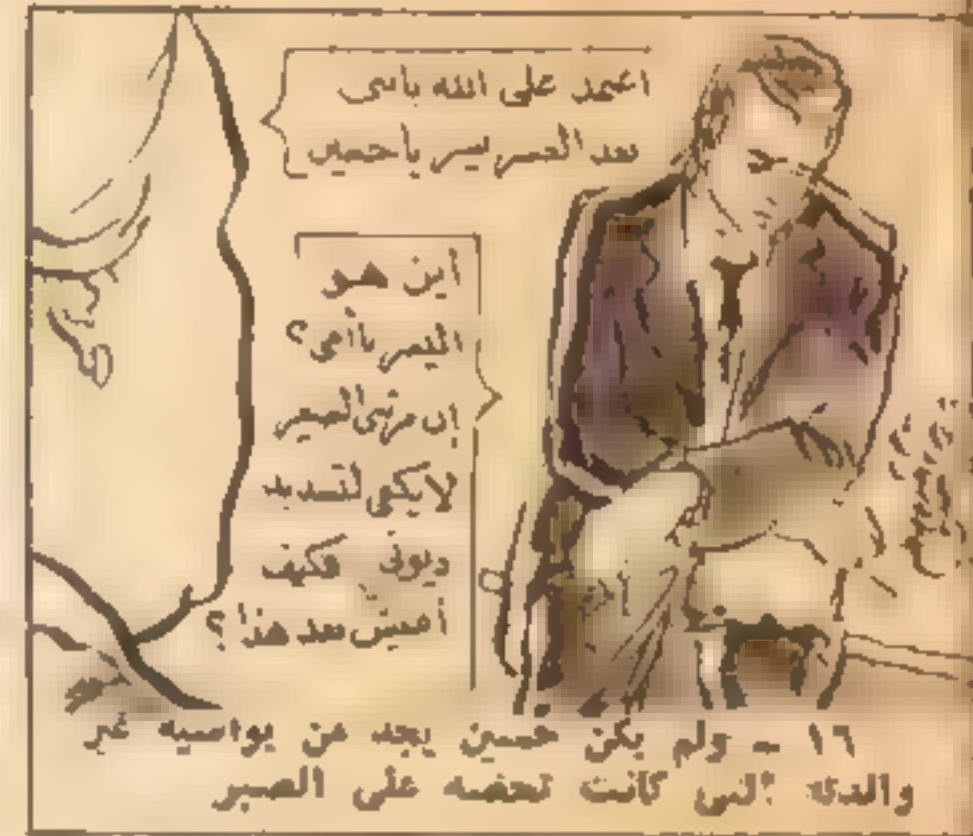 اعتمد على الله يابنى
بعد العسر يسر ياحسين
أين هو
اليسر ياأمى؟
إن مرتبى الصغير
لايكفى لتسديد
ديونى فكيف
أعيش بعد هذا؟
١٦ ـ ولم يكن حسين يجد من يواسيه غير
والدته التى كانت تحضه على الصبر